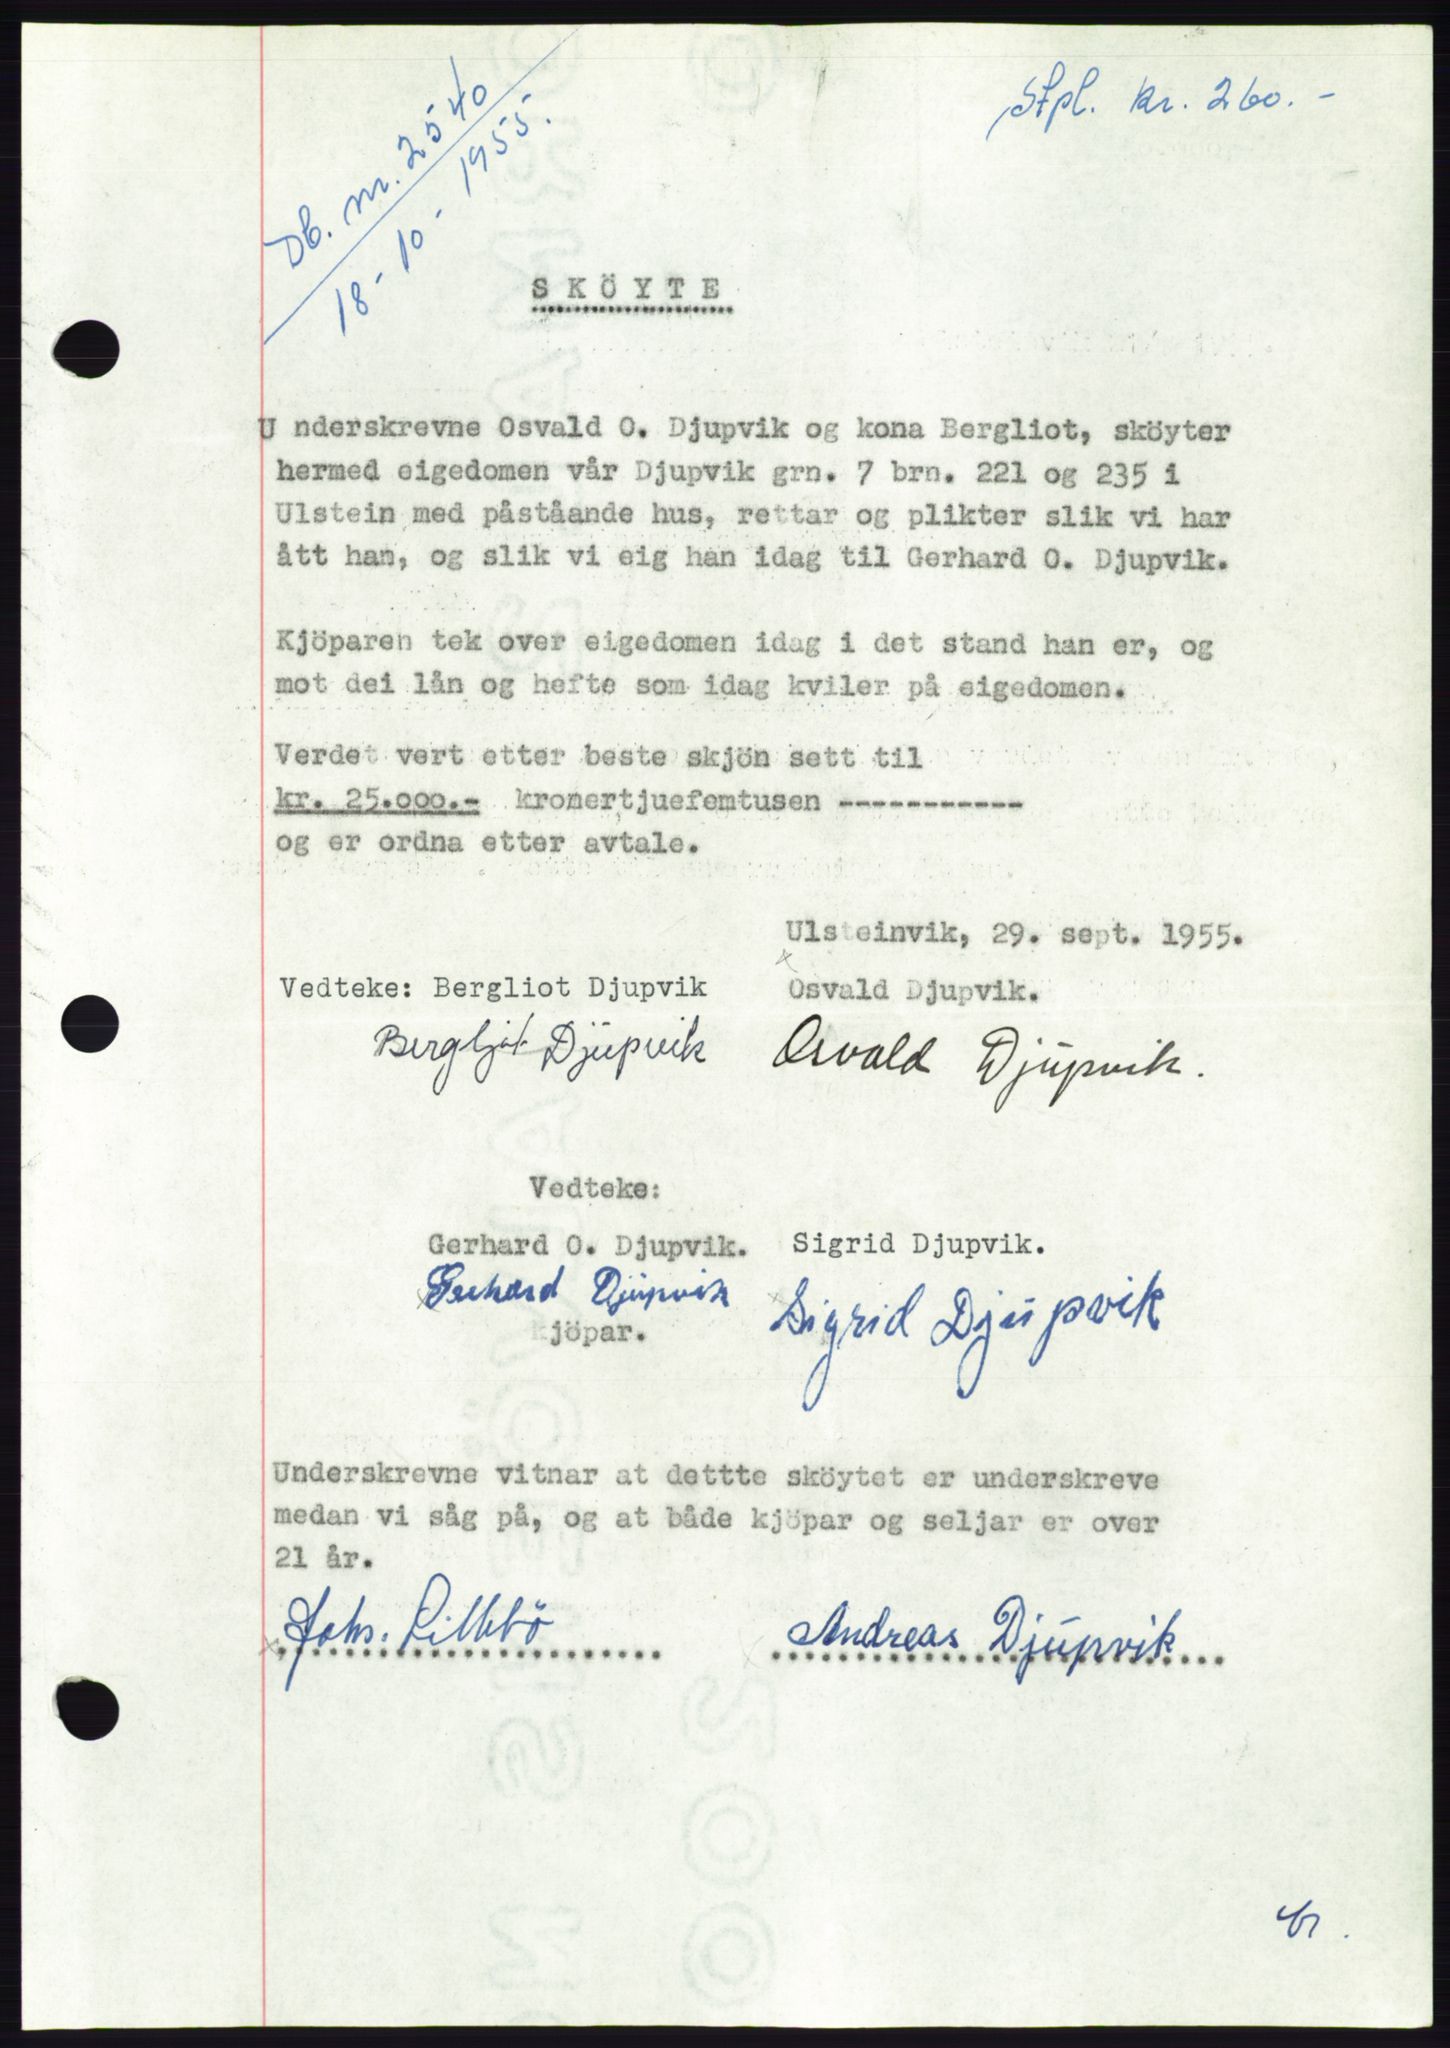 Stpl. kr. 260.-
Db. nr. 2540
18-10-1955.
SKÖYTE
U nderskrevne Osvald O. Djupvik og kona Bergliot, sköyter
hermed eigedomen vår Djupvik grn. 7 brn. 221 og 235 i
Ulstein med påståande hus, rettar og plikter slik vi har
ått han, og slik vi eig han idag til Gerhard O. Djupvik.
Kjöparen tek over eigedomen idag i det stand han er, og
mot dei lån og hefte som idag kviler på eigedomen.
Verdet vert etter beste skjön sett til
kr. 25.000.- kronertjuefemtusen -----------
og er ordna etter avtale.
Ulsteinvik, 29. sept. 1955.
Vedteke: Bergliot Djupvik Osvald Djupvik.
Bergljot Djupvik Osvald Djupvik.
Vedteke:
Gerhard O. Djupvik. Sigrid Djupvik.
Gerhard Djupvik Sigrid Djupvik
kjöpar.
Underskrevne vitnar at dettte sköytet er underskreve
medan vi såg på, og at både kjöpar og seljar er over
21 år.
Johs. Lillebö Andreas Djupvik